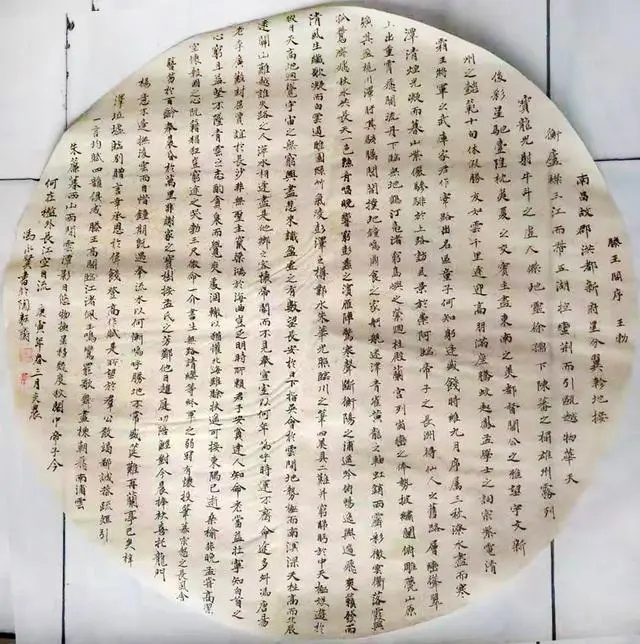 滕王閣序 王勃
南昌故郡洪都新府星分翼軫地接
衡廬襟三江而帶五湖控蠻荊而引甌越物華天
寶龍光射牛斗之虛人傑地靈徐孺下陳蕃之榻雄州霧列
俊彩星馳臺隍枕夷夏之交賓主盡東南之美都督閻公之雅望宇文新
州之懿範十旬休暇勝友如雲千里逢迎高朋滿座騰蛟起鳳孟學士之詞宗紫電清
霜王將軍之武庫家君作宰路出名區童子何知躬逢盛餞時維九月序屬三秋潦水盡而寒
潭清煙光凝而暮山紫儼驂騑於上路訪風景於崇阿臨帝子之長洲得仙人之舊館層巒聳翠
上出重霄飛閣流丹下臨無地鶴汀鳧渚窮島嶼之縈迴桂殿蘭宮列岡巒之體勢披繡闥俯雕甍山原
曠其盈視川澤紆其駭矚閭閻撲地鐘鳴鼎食之家舸艦迷津青雀黃龍之軸虹銷雨霽彩徹雲衢落霞與
孤鶩齊飛秋水共長天一色漁舟唱晚響窮彭蠡之濱雁陣驚寒聲斷衡陽之浦遙吟俯暢逸興遄飛爽籟發而
清風生纖歌凝而白雲遏睢園綠竹氣凌彭澤之樽鄴水朱華光照臨川之筆四美具二難并窮睇眄於中天極娛遊於
暇日天高地迥覺宇宙之無窮興盡悲來識盈虛之有數望長安於日下指吳會於雲間地勢極而南溟深天柱高而北辰
遠關山難越誰悲失路之人萍水相逢盡是他鄉之客懷帝閽而不見奉宣室以何年嗚呼時運不齊命途多舛馮唐易
老李廣難封屈賈誼於長沙非無聖主竄梁鴻於海曲豈乏明時所賴君子安貧達人知命老當益壯寧知白首之
心窮且益堅不墜青雲之志酌貪泉而覺爽處涸轍以猶懽北海雖賒扶搖可接東隅已逝桑榆非晚孟嘗高潔
空懷報國之心阮籍猖狂豈效窮途之哭勃三尺微命一介書生無路請纓等終軍之弱冠有懷投筆慕宗愨之長風舍
簪笏於百齡奉晨昏於萬里非謝家之寶樹接孟氏之芳鄰他日趨庭叨陪鯉對今晨捧袂喜託龍門
楊意不逢撫凌雲而自惜鍾期既遇奏流水以何慚嗚呼勝地不常盛筵難再蘭亭已矣梓
澤坵墟臨別贈言幸承恩於偉餞登高作賦是所望於群公敢竭鄙誠恭疏短引
一言均賦四韻俱成滕王高閣臨江渚佩玉鳴鸞罷歌舞畫棟朝飛南浦雲
朱簾暮捲西山雨閒雲潭影日悠悠物換星移幾度秋閣中帝子今
何在檻外長江空自流 庚寅年春三月